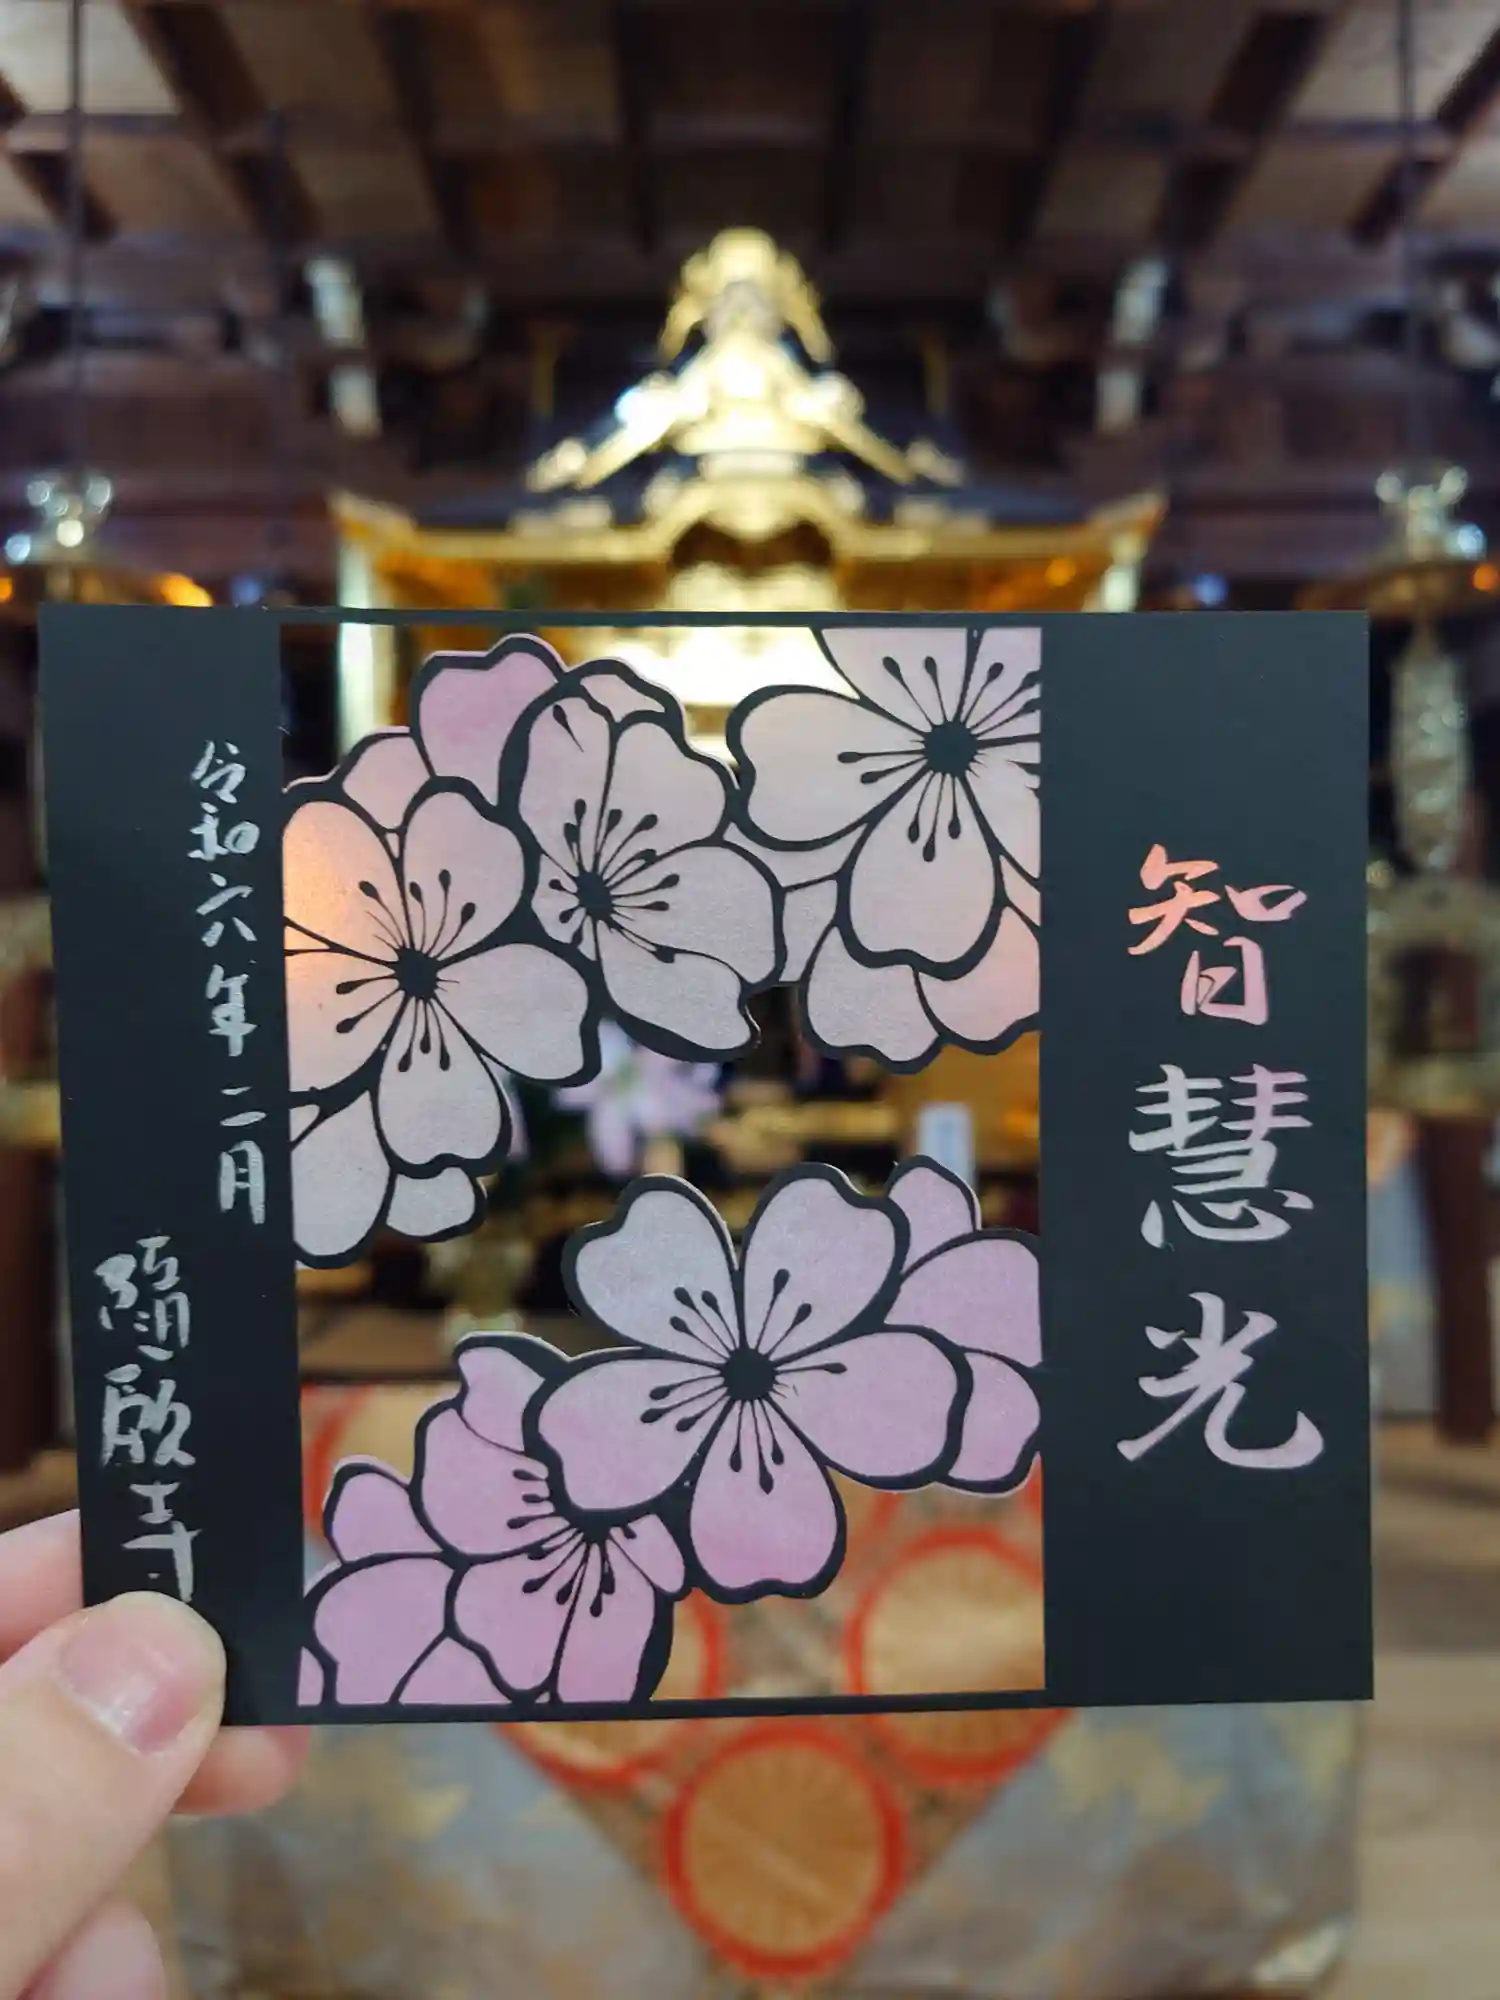 智慧光
令和六年二月
随願寺